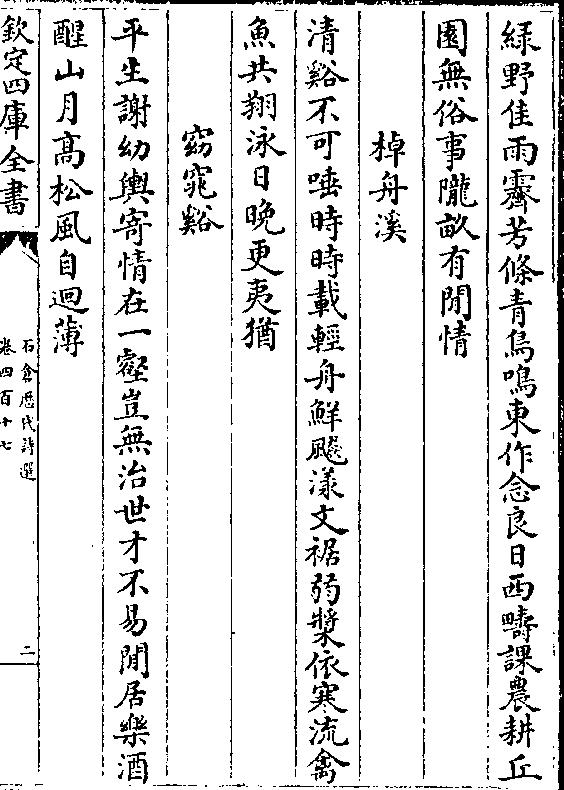 綠野佳雨霽芳條青鳥鳴東作念良日西疇課農耕丘
園無俗事隴畝有閒情
棹舟溪
清谿不可唾時時載輕舟鮮飈漾文裾弱槳依寒流禽
魚共翔泳日晚更夷猶
窈窕谿
平生謝幼輿寄情在一壑豈無治世才不易閒居樂酒
醒山月高松風自迴薄
欽定四庫全書
石倉歷代詩選
卷四百十七
二